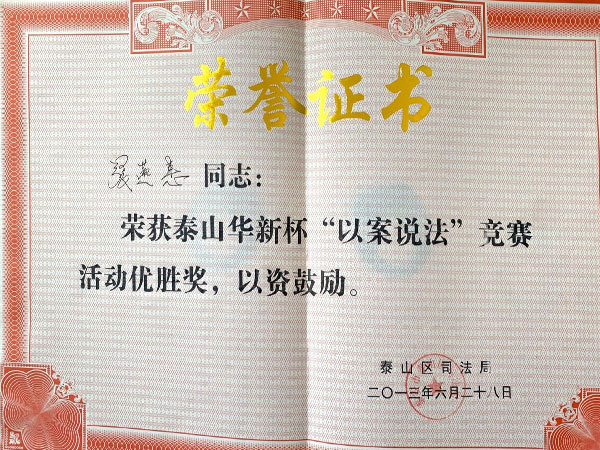 荣誉证书
燕惠 同志：
荣获泰山华新杯“以案说法”竞赛
活动优胜奖，以资鼓励。
泰山区司法局
二〇一三年六月二十八日